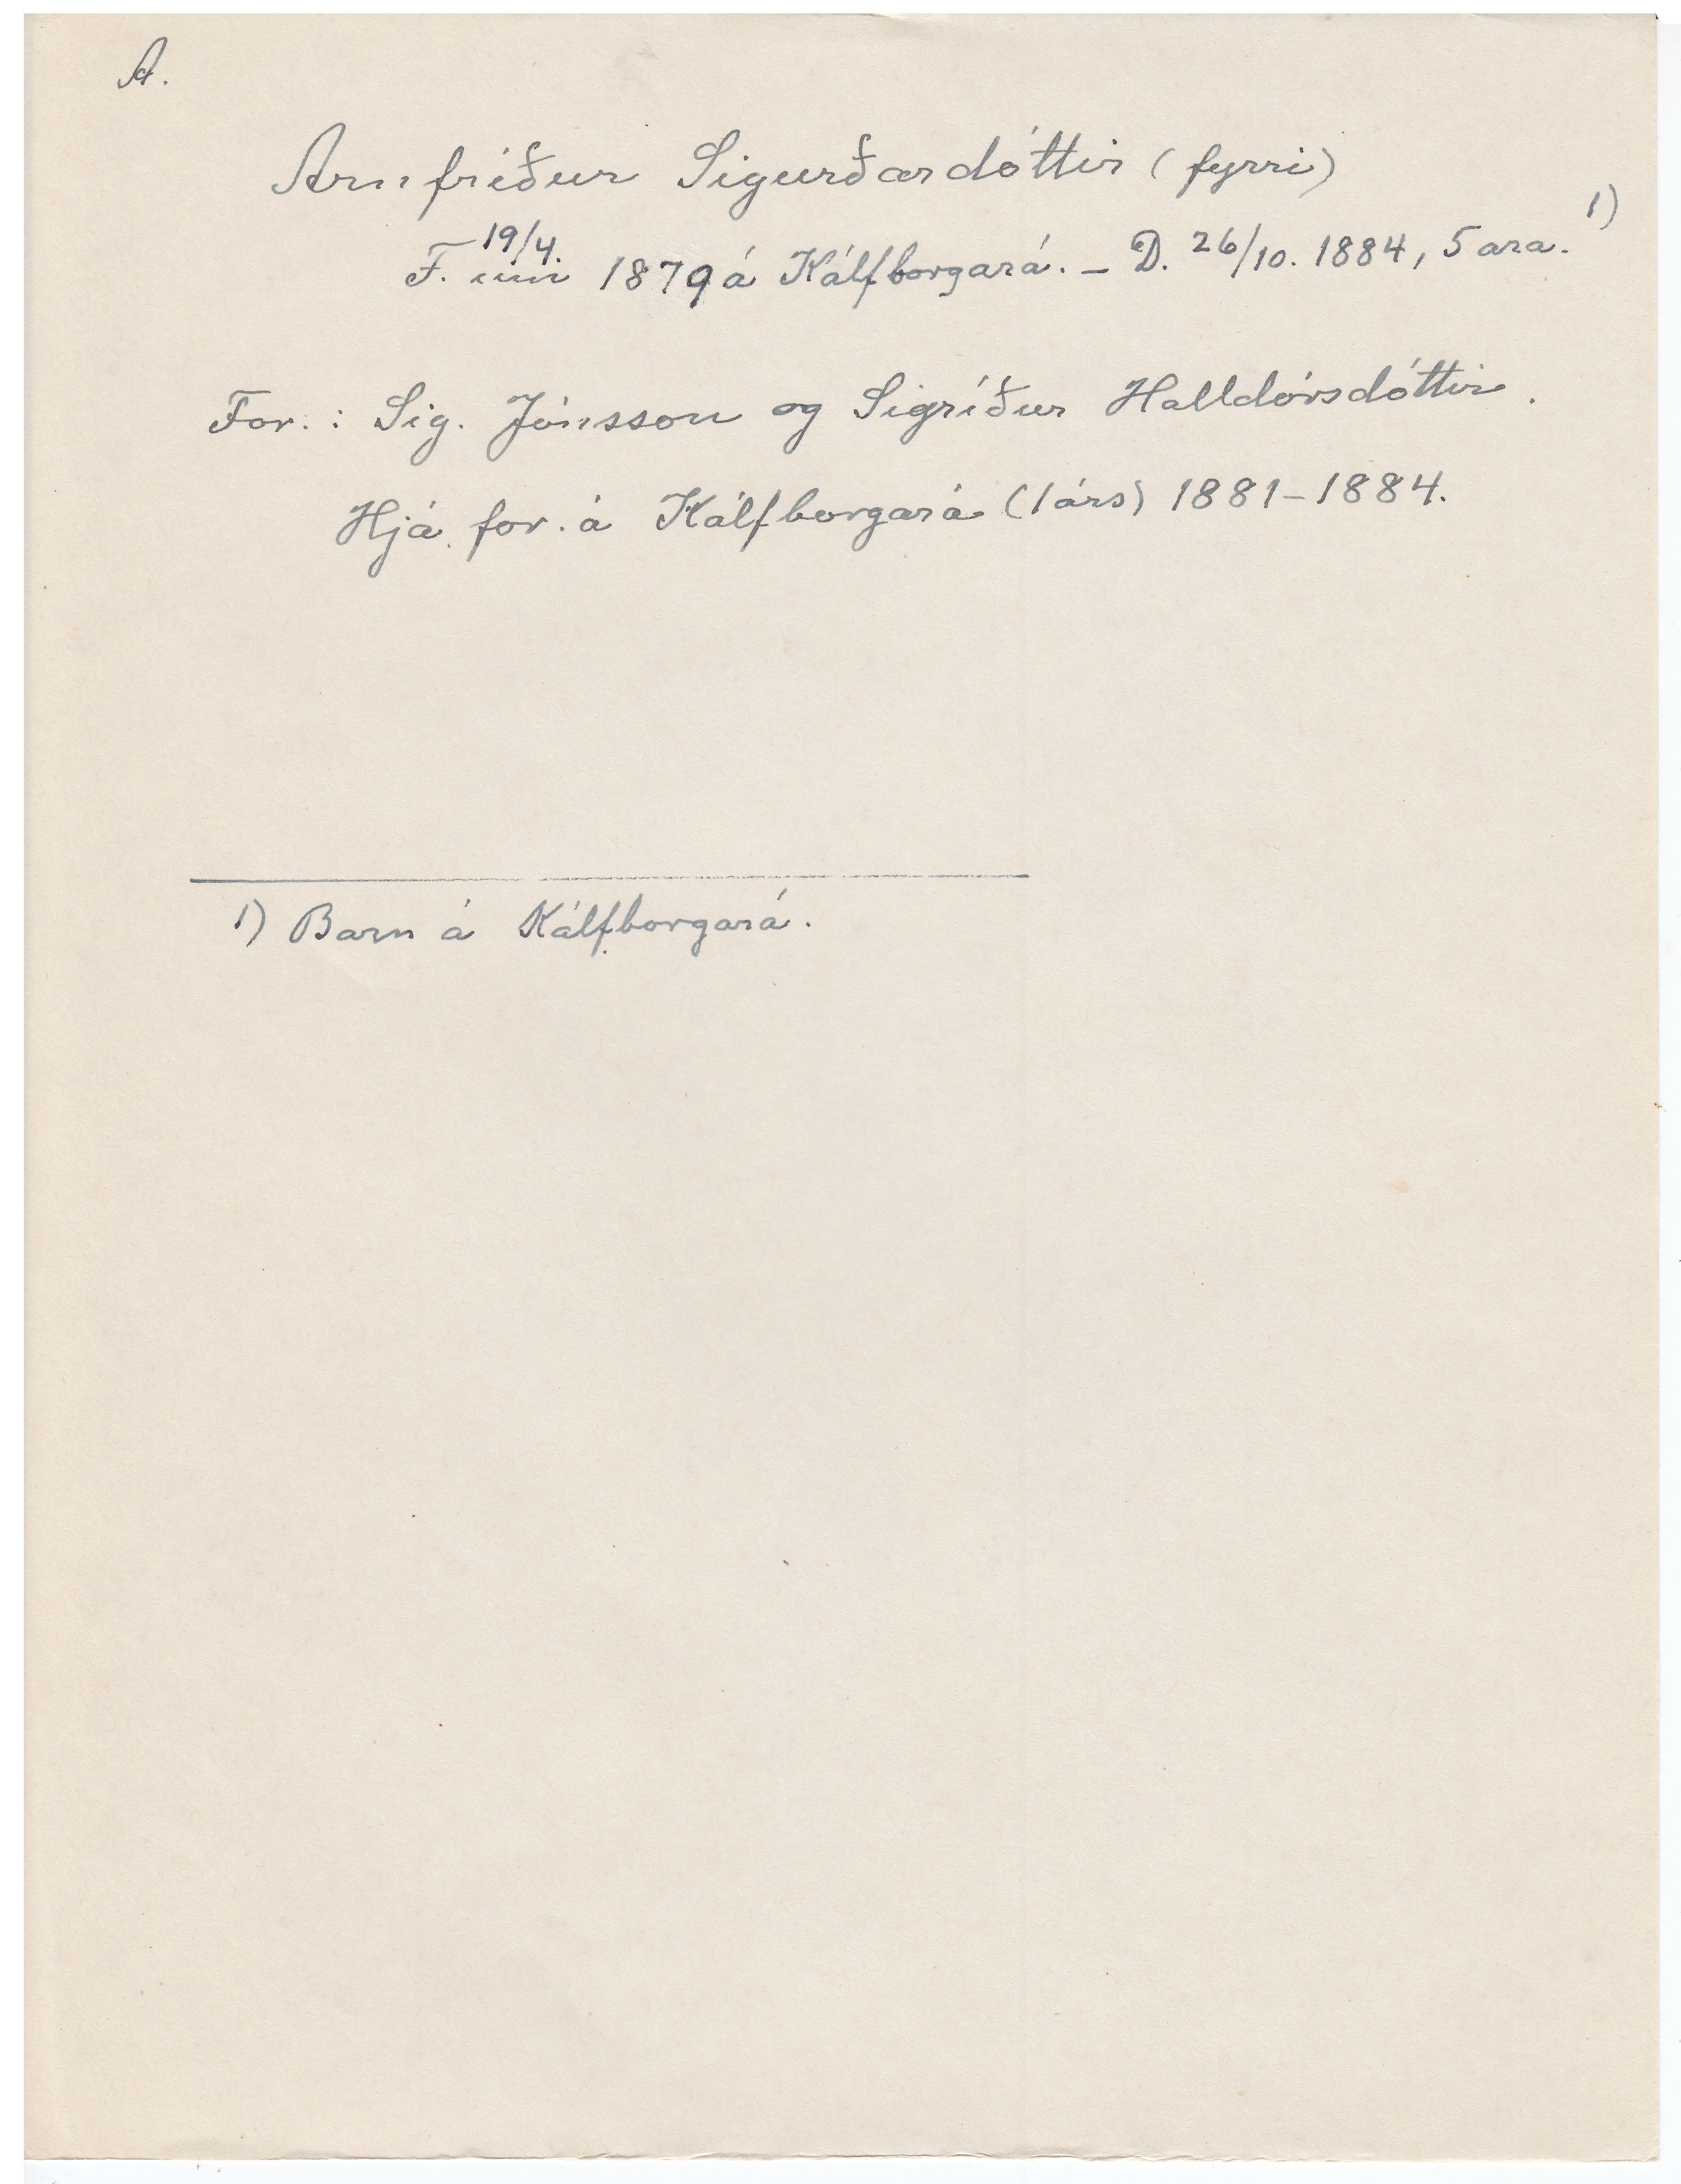 A.
Arnfríður Sigurðardóttir (fyrri)
19/4.
F. um 1879 á Kálfborgará. – D. 26/10. 1884, 5 ara. 1)
For.: Sig. Jónsson og Sigríður Halldórsdóttir.
Hjá for. á Kálfborgará (1 árs) 1881–1884.
1) Barn á Kálfborgará.